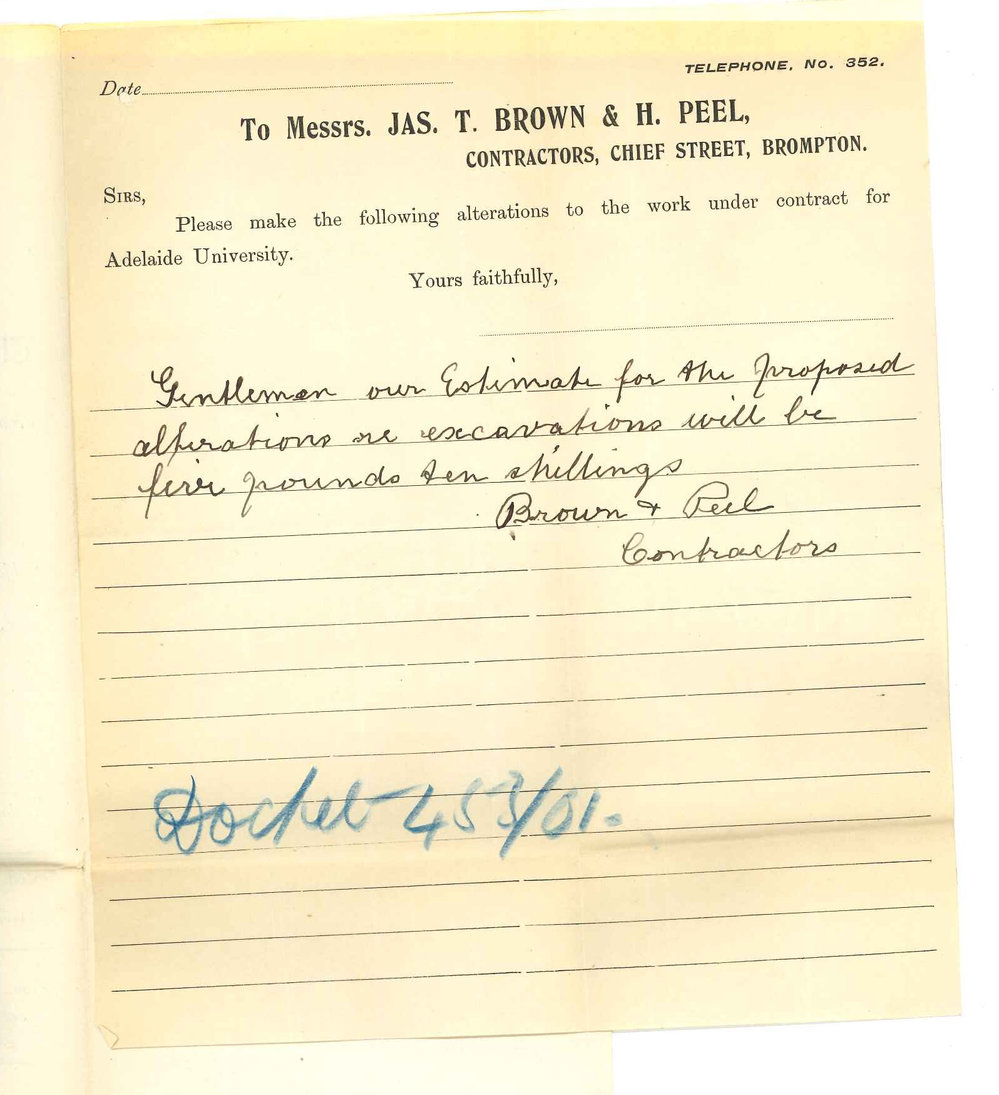 TELEPHONE, No. 352.
Date
To Messrs. JAS. T. BROWN & H. PEEL,
CONTRACTORS, CHIEF STREET, BROMPTON.
SIRS,
Please make the following alterations to the work under contract for
Adelaide University.
Yours faithfully,
Gentlemen our Estimate for the proposed
alterations re excavations will be
five pounds ten shillings
Brown & Peel
Contractors
Docket 453/01.